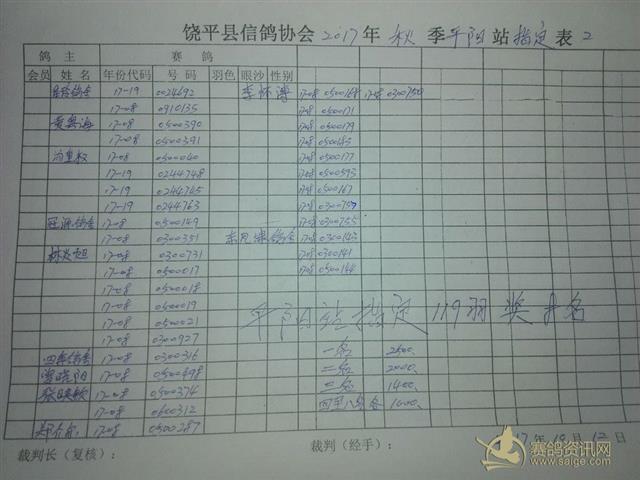 饶平县信鸽协会 2017 年 秋 季 平阳 站 指定 表 2
鸽 主 赛 鸽
会员 姓 名 年份代码 号 码 羽色 眼沙 性别
17-19 0024692 李怀涛 17-08 0500168 17-08 0300750
17-08 0910135 17-08 0500171
黄奕海 17-08 0500390 17-08 0500179
17-08 0500391 17-08 0500185
17-08 0500040 17-08 0500177
17-19 0244748 17-08 0500593
17-19 0244745 17-08 0500167
17-19 0244763 17-08 0300757
17-08 0500149 17-08 0300755
17-08 0300351 17-08 0300143
17-08 0300731 17-08 0300141
17-08 0500017 17-08 0500144
17-08 0500018
17-08 0500019
平阳站指定 119羽 奖十名
17-08 0500021
17-08 0300927
17-08 0300316 一名 2500
曾晓阳 17-08 0500498 二名 2000
17-08 0500374 三名 1400
17-08 0600312 四至八名各 1000
17-08 0500287
裁判长（复核）： 裁判（经手）： 17 年 10 月 12 日
赛鸽资讯网
www.saige.com